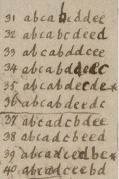 31 abcabcddee
32 abcabcdeed
33 abcabddcee
34 abcabddeec
35 abcabdecde*
36 abcabdeedc
37 abcadcbdee
38 abcadcbeed
39 abcadcedbe*
40 abcadceebd